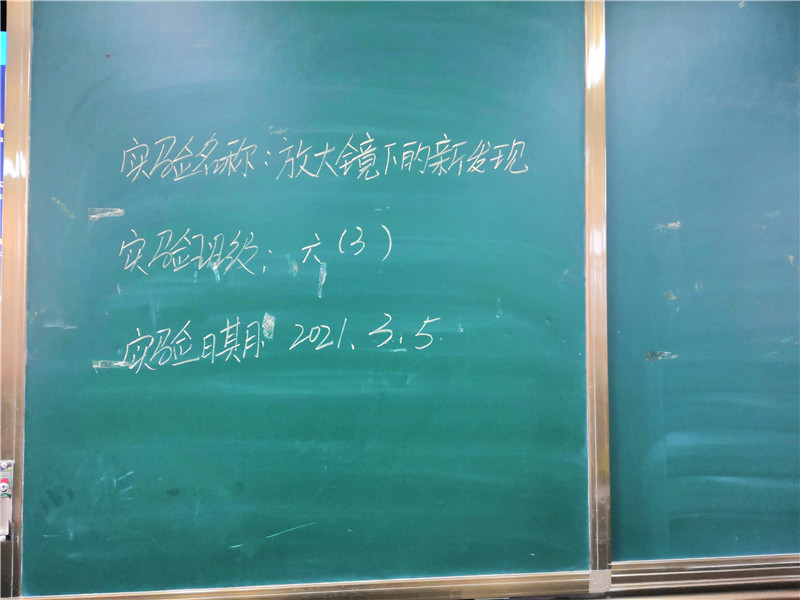 实验名称:放大镜下的新发现
实验班级:六(3)
实验日期: 2021.3.5